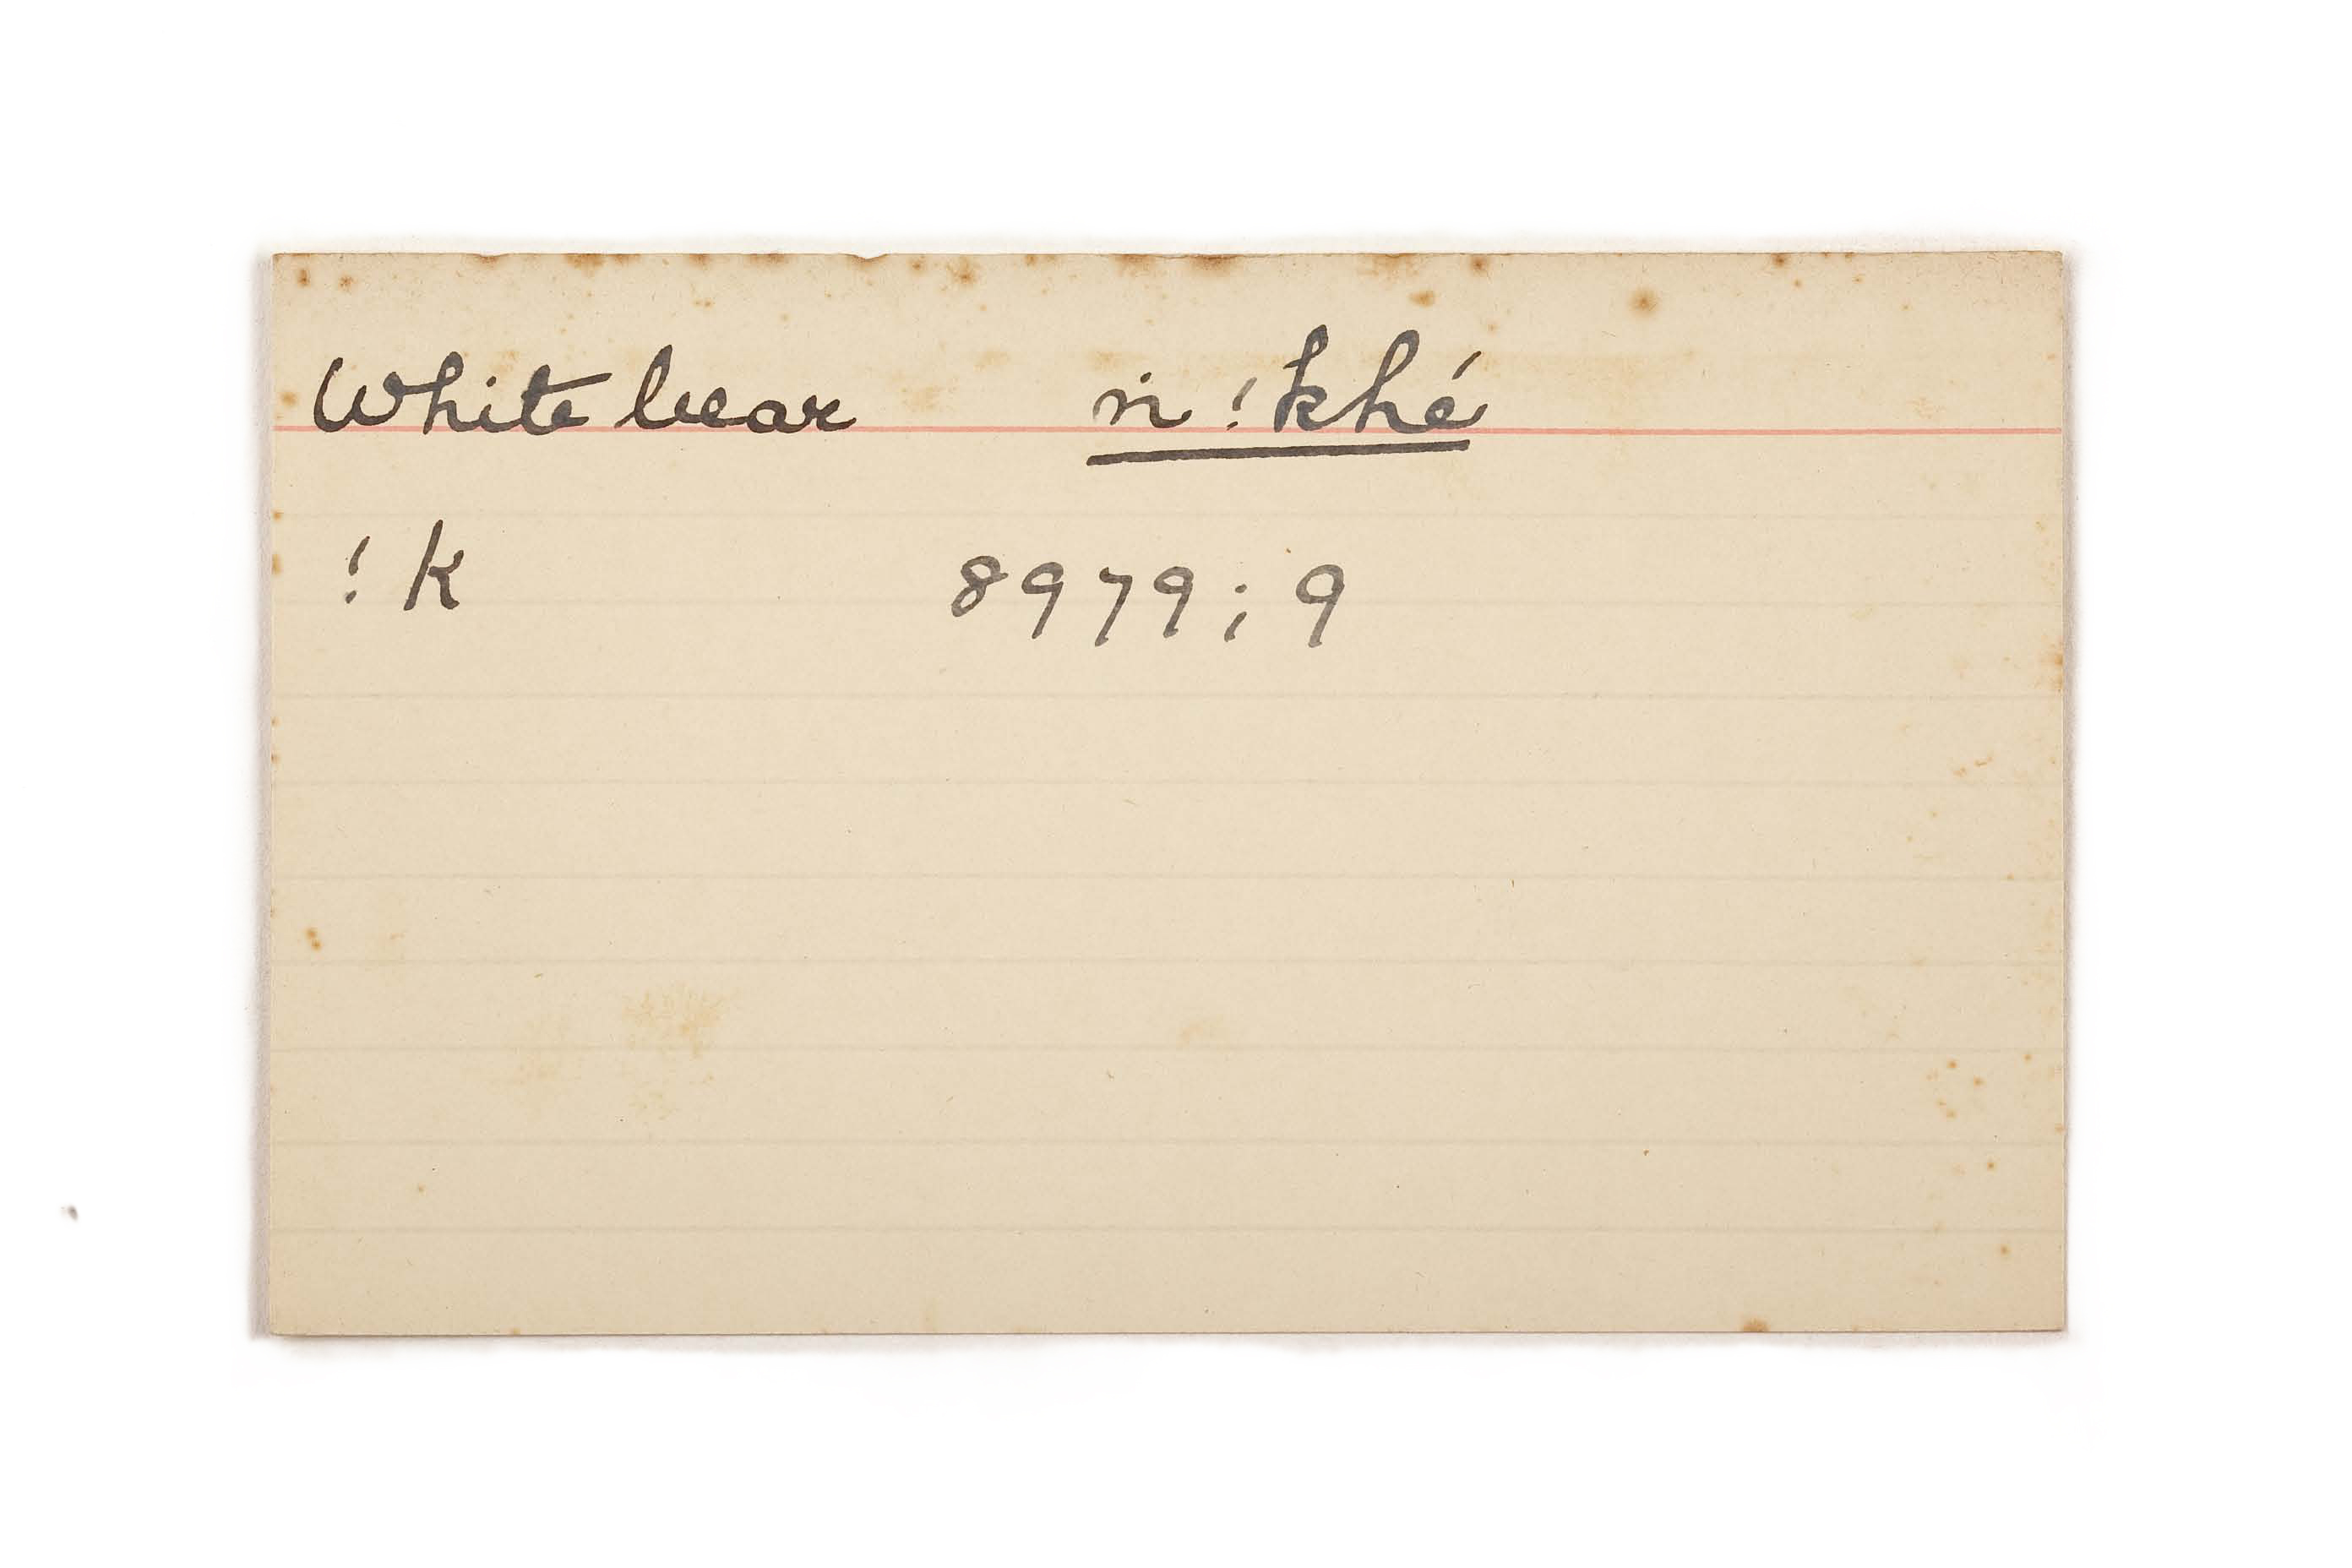 White bear ṅ !khé
! k 8979; 9